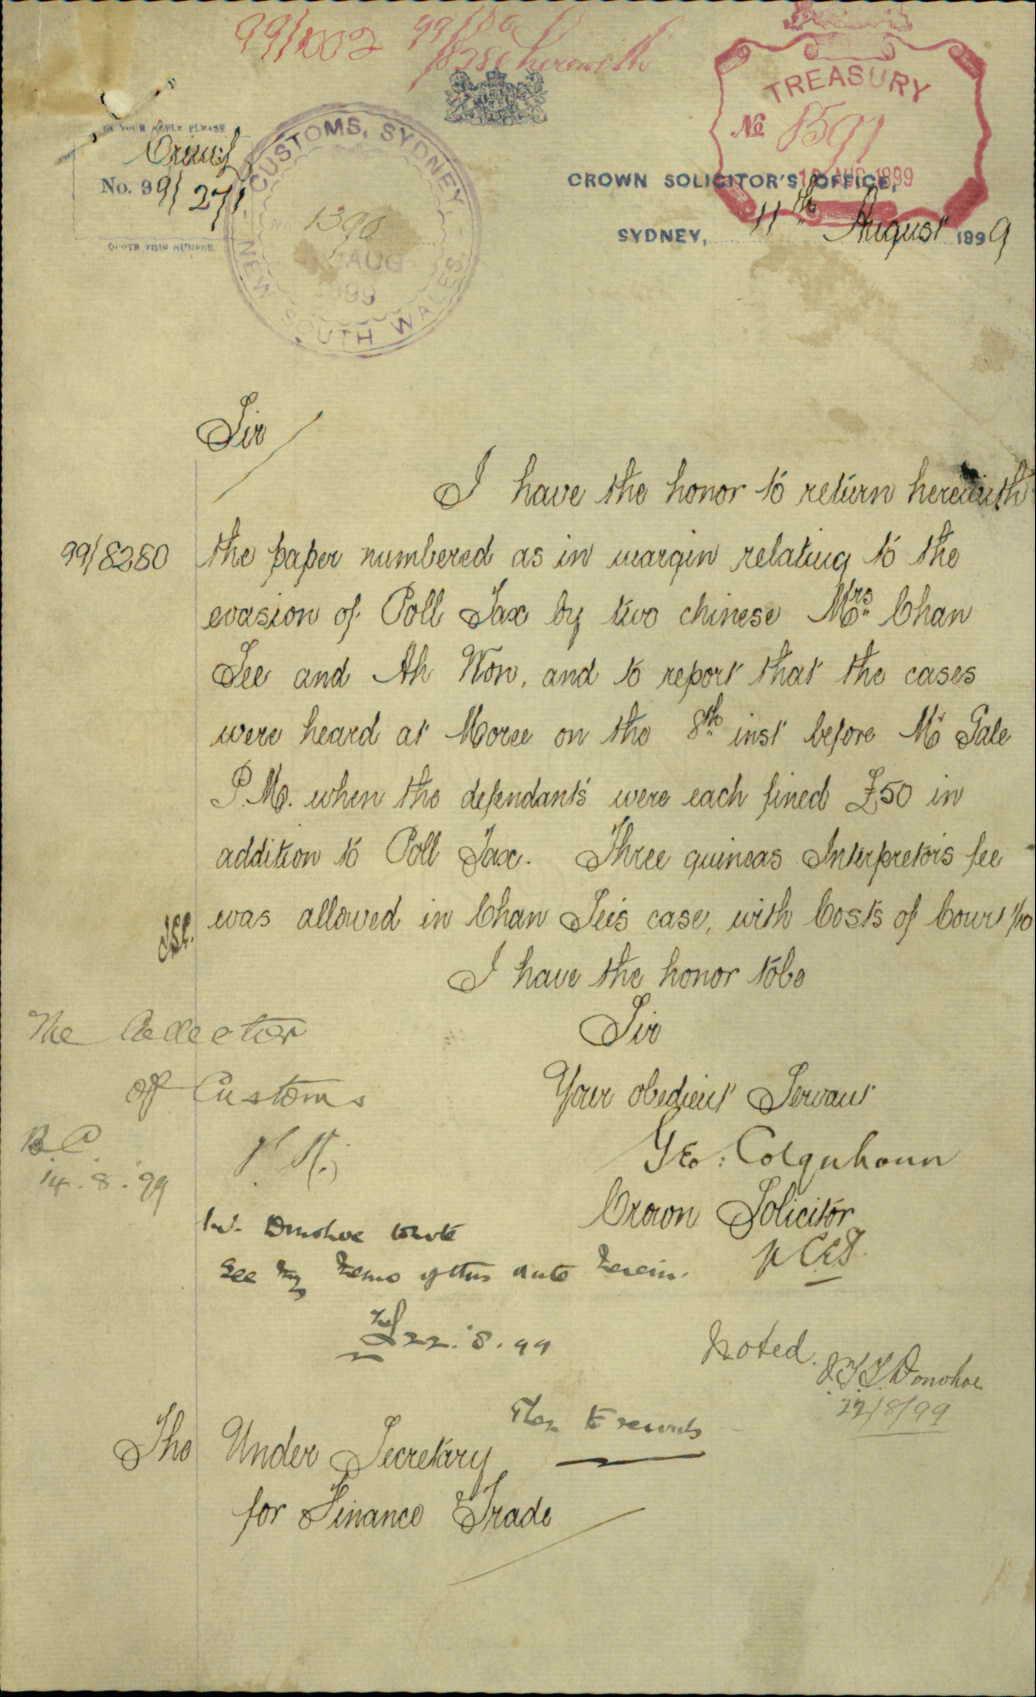 99/1002 99/
herewith
TREASURY
No 8591
AUG 1899
IN YOUR REPLY PLEASE
No. 99/271
QUOTE THIS NUMBER
CUSTOMS, SYDNEY,
NEW SOUTH WALES
1390
AUG
1899
CROWN SOLICITOR'S OFFICE,
SYDNEY, 11th August 1899
Sir
I have the honor to return herewith
99/8280 the paper numbered as in margin relating to the
evasion of Poll Tax by two chinese Mrs Chan
See and Ah Won, and to report that the cases
were heard at Moree on the 8th inst before Mr Gale
P.M. when the defendants were each fined £50 in
addition to Poll Tax. Three guineas Interpretors fee
was allowed in Chan See's case, with Costs of Court 1/10
I have the honor to be
Sir
Your obedient Servant
Geo: Colquhoun
Crown Solicitor
The Collector
of Customs
B.C.
14.8.99
Mr. Donohoe to note
See my memo of this date herein.
22.8.99
Noted.
Donohoe
22/8/99
Then to records
The Under Secretary
for Finance & Trade